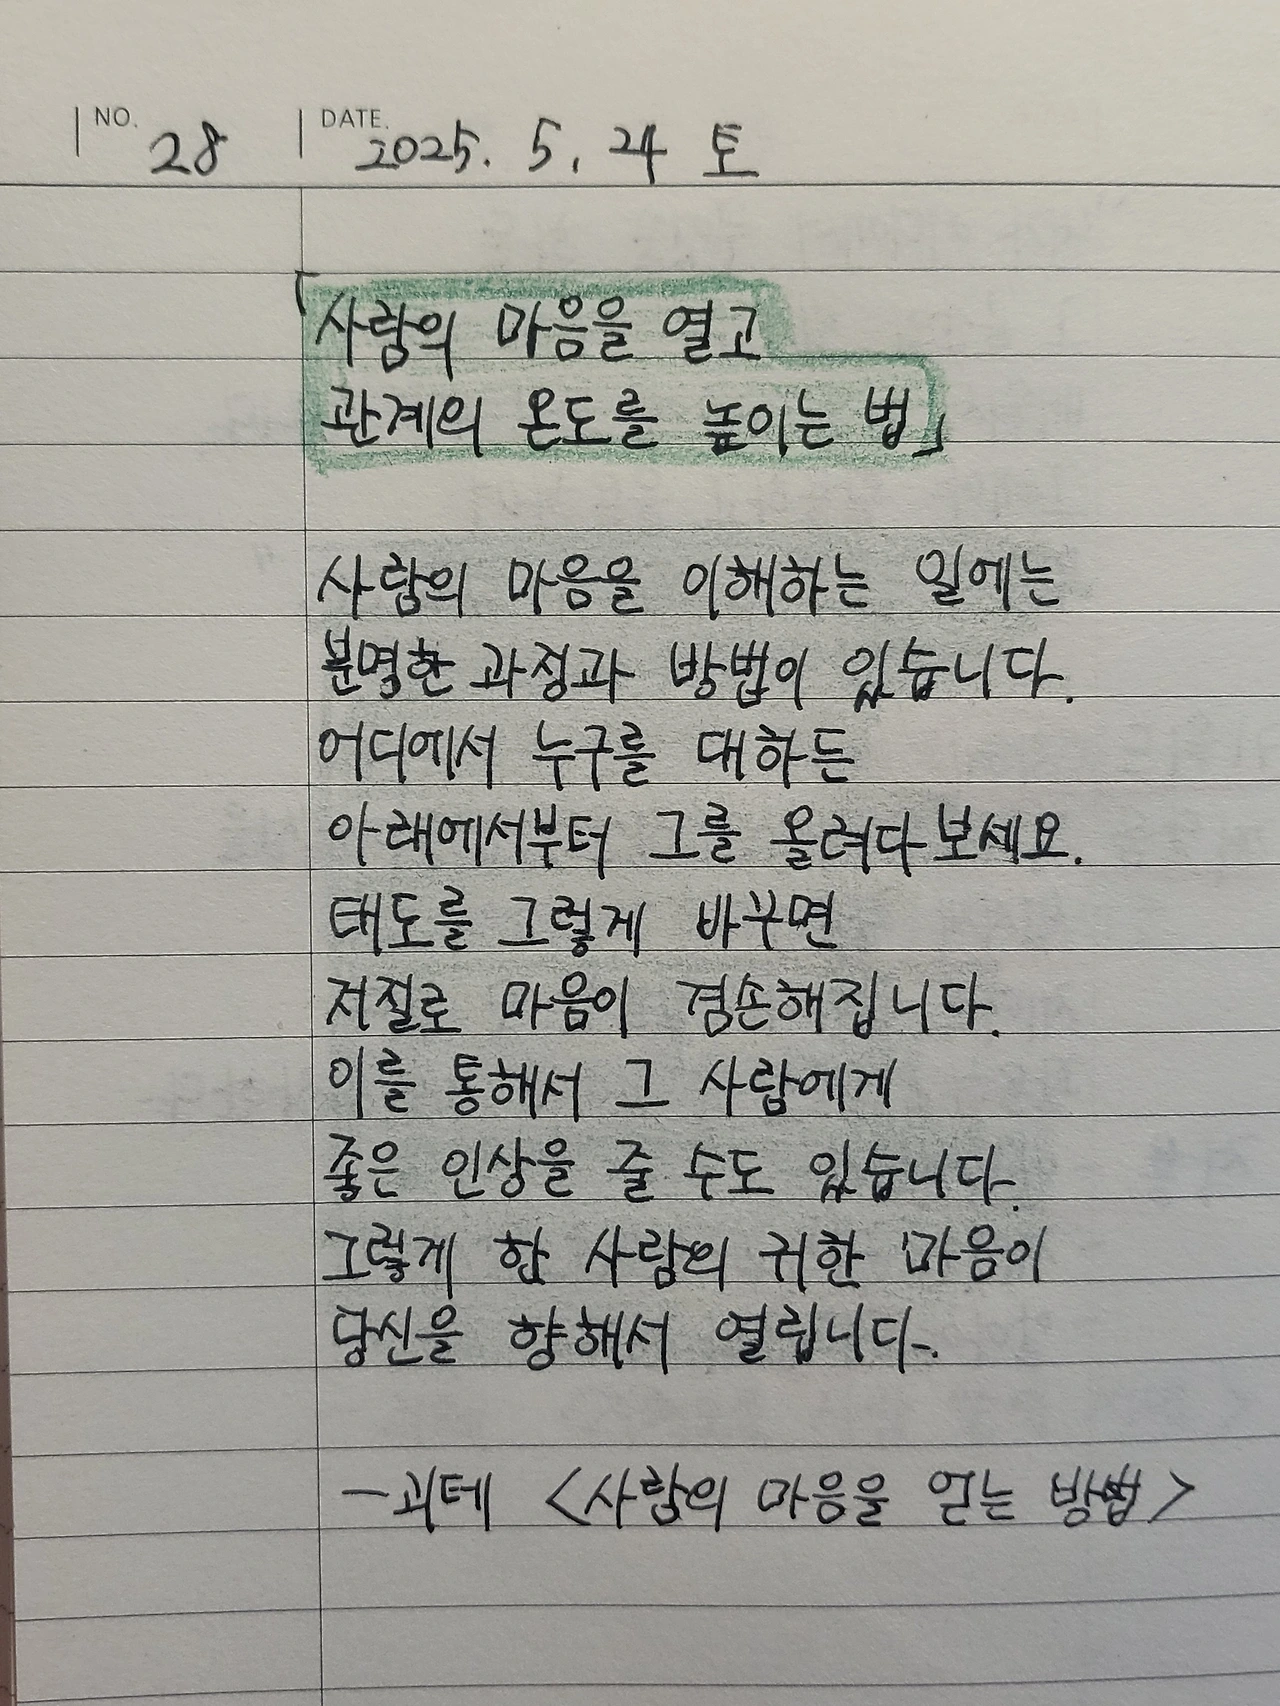 NO. 28 DATE. 2025. 5. 24 토
「사람의 마음을 열고
관계의 온도를 높이는 법」
사람의 마음을 이해하는 일에는
분명한 과정과 방법이 있습니다.
어디에서 누구를 대하든
아래에서부터 그를 올려다 보세요.
태도를 그렇게 바꾸면
저절로 마음이 겸손해집니다.
이를 통해서 그 사람에게
좋은 인상을 줄 수도 있습니다.
그렇게 한 사람의 귀한 마음이
당신을 향해서 열립니다.
-괴테 <사람의 마음을 얻는 방법>